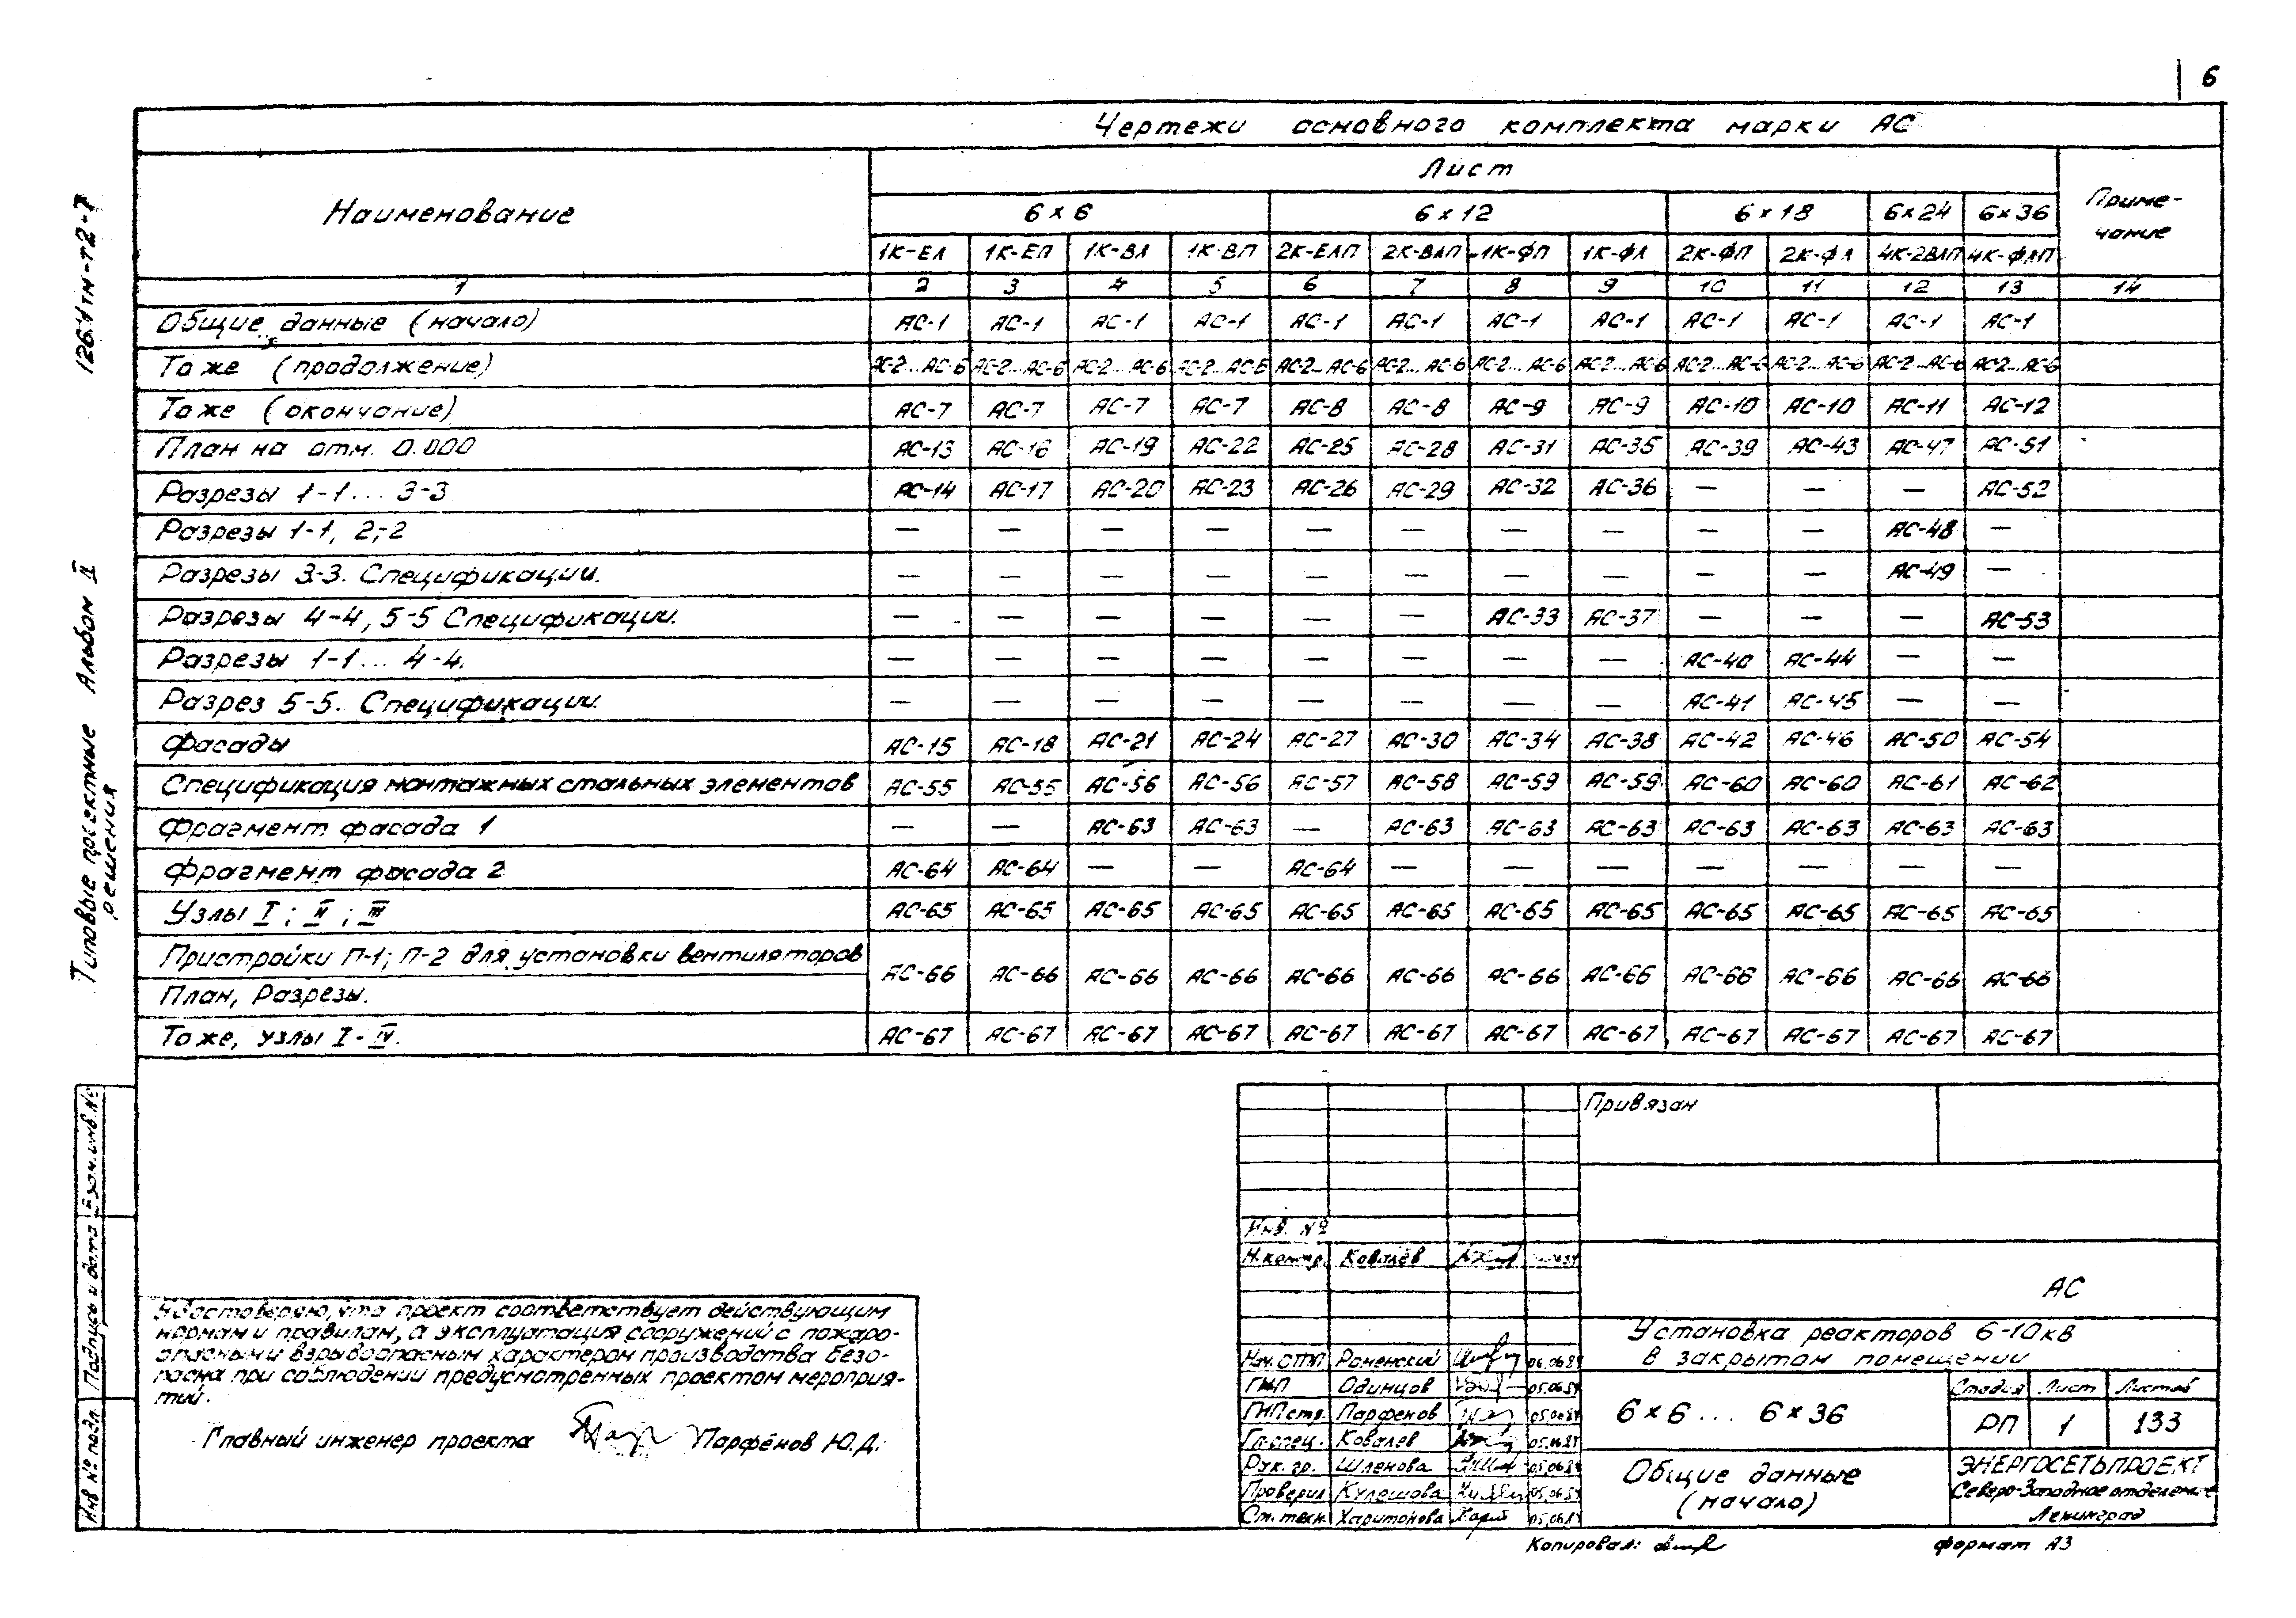 6
Чертежи основного комплекта марки АС
Наименование
Лист
Приме-
чание
6×6 6×12 6×18 6×24 6×36
1К-ЕЛ 1К-ЕП 1К-ВЛ 1К-ВП 2К-ЕЛП 2К-ВЛП 1К-ФП 1К-ФЛ 2К-ФП 2К-ФЛ 4К-2ВЛП 4К-ФЛП
1 2 3 4 5 6 7 8 9 10 11 12 13 14
Общие данные (начало) АС-1 АС-1 АС-1 АС-1 АС-1 АС-1 АС-1 АС-1 АС-1 АС-1 АС-1 АС-1
То же (продолжение) АС-2...АС-6 АС-2...АС-6 АС-2...АС-6 АС-2...АС-6 АС-2...АС-6 АС-2...АС-6 АС-2...АС-6 АС-2...АС-6 АС-2...АС-6 АС-2...АС-6 АС-2...АС-6 АС-2...АС-6
То же (окончание) АС-7 АС-7 АС-7 АС-7 АС-8 АС-8 АС-9 АС-9 АС-10 АС-10 АС-11 АС-12
План на отм. 0.000 АС-13 АС-16 АС-19 АС-22 АС-25 АС-28 АС-31 АС-35 АС-39 АС-43 АС-47 АС-51
Разрезы 1-1... 3-3 АС-14 АС-17 АС-20 АС-23 АС-26 АС-29 АС-32 АС-36 — — — АС-52
Разрезы 1-1, 2-2 — — — — — — — — — — АС-48 —
Разрезы 3-3. Спецификации. — — — — — — — — — — АС-49 —
Разрезы 4-4, 5-5 Спецификации. — — — — — — АС-33 АС-37 — — — АС-53
Разрезы 1-1... 4-4. — — — — — — — — АС-40 АС-44 — —
Разрез 5-5. Спецификации. — — — — — — — — АС-41 АС-45 — —
Фасады АС-15 АС-18 АС-21 АС-24 АС-27 АС-30 АС-34 АС-38 АС-42 АС-46 АС-50 АС-54
Спецификация монтажных стальных элементов АС-55 АС-55 АС-56 АС-56 АС-57 АС-58 АС-59 АС-59 АС-60 АС-60 АС-61 АС-62
Фрагмент фасада 1 — — АС-63 АС-63 — АС-63 АС-63 АС-63 АС-63 АС-63 АС-63 АС-63
Фрагмент фасада 2 АС-64 АС-64 — — АС-64 — — — — — — —
Узлы I; II; III АС-65 АС-65 АС-65 АС-65 АС-65 АС-65 АС-65 АС-65 АС-65 АС-65 АС-65 АС-65
Пристройки П-1; П-2 для установки вентиляторов
План, Разрезы. АС-66 АС-66 АС-66 АС-66 АС-66 АС-66 АС-66 АС-66 АС-66 АС-66 АС-66 АС-66
То же, узлы I-IV. АС-67 АС-67 АС-67 АС-67 АС-67 АС-67 АС-67 АС-67 АС-67 АС-67 АС-67 АС-67
Типовые проектные решения Альбом II
Взам.инв.№
Подпись и дата
Инв № подл.
Удостоверяю, что проект соответствует действующим
нормам и правилам, а эксплуатация сооружений с пожаро-
опасным и взрывоопасным характером производства безо-
пасна при соблюдении предусмотренных проектом мероприя-
тий.
Главный инженер проекта Парфёнов Ю.Д.
Привязан
Инв. №
Н.контр. Ковалёв
АС
Установка реакторов 6-10кв
в закрытом помещении
Нач.ОТП Роменский 06.06.84
ГИП Одинцов 05.06.84
ГИПстр. Парфенов 05.06.84
Гл.спец. Ковалев 05.06.84
Рук. гр. Шленова 05.06.84
Проверил Кулешова 05.06.84
Ст.техн. Харитонова 05.06.84
6×6... 6×36
Стадия Лист Листов
РП 1 133
Общие данные
(начало)
ЭНЕРГОСЕТЬПРОЕКТ
Северо-Западное отделение
Ленинград
Копировал:
Формат А3